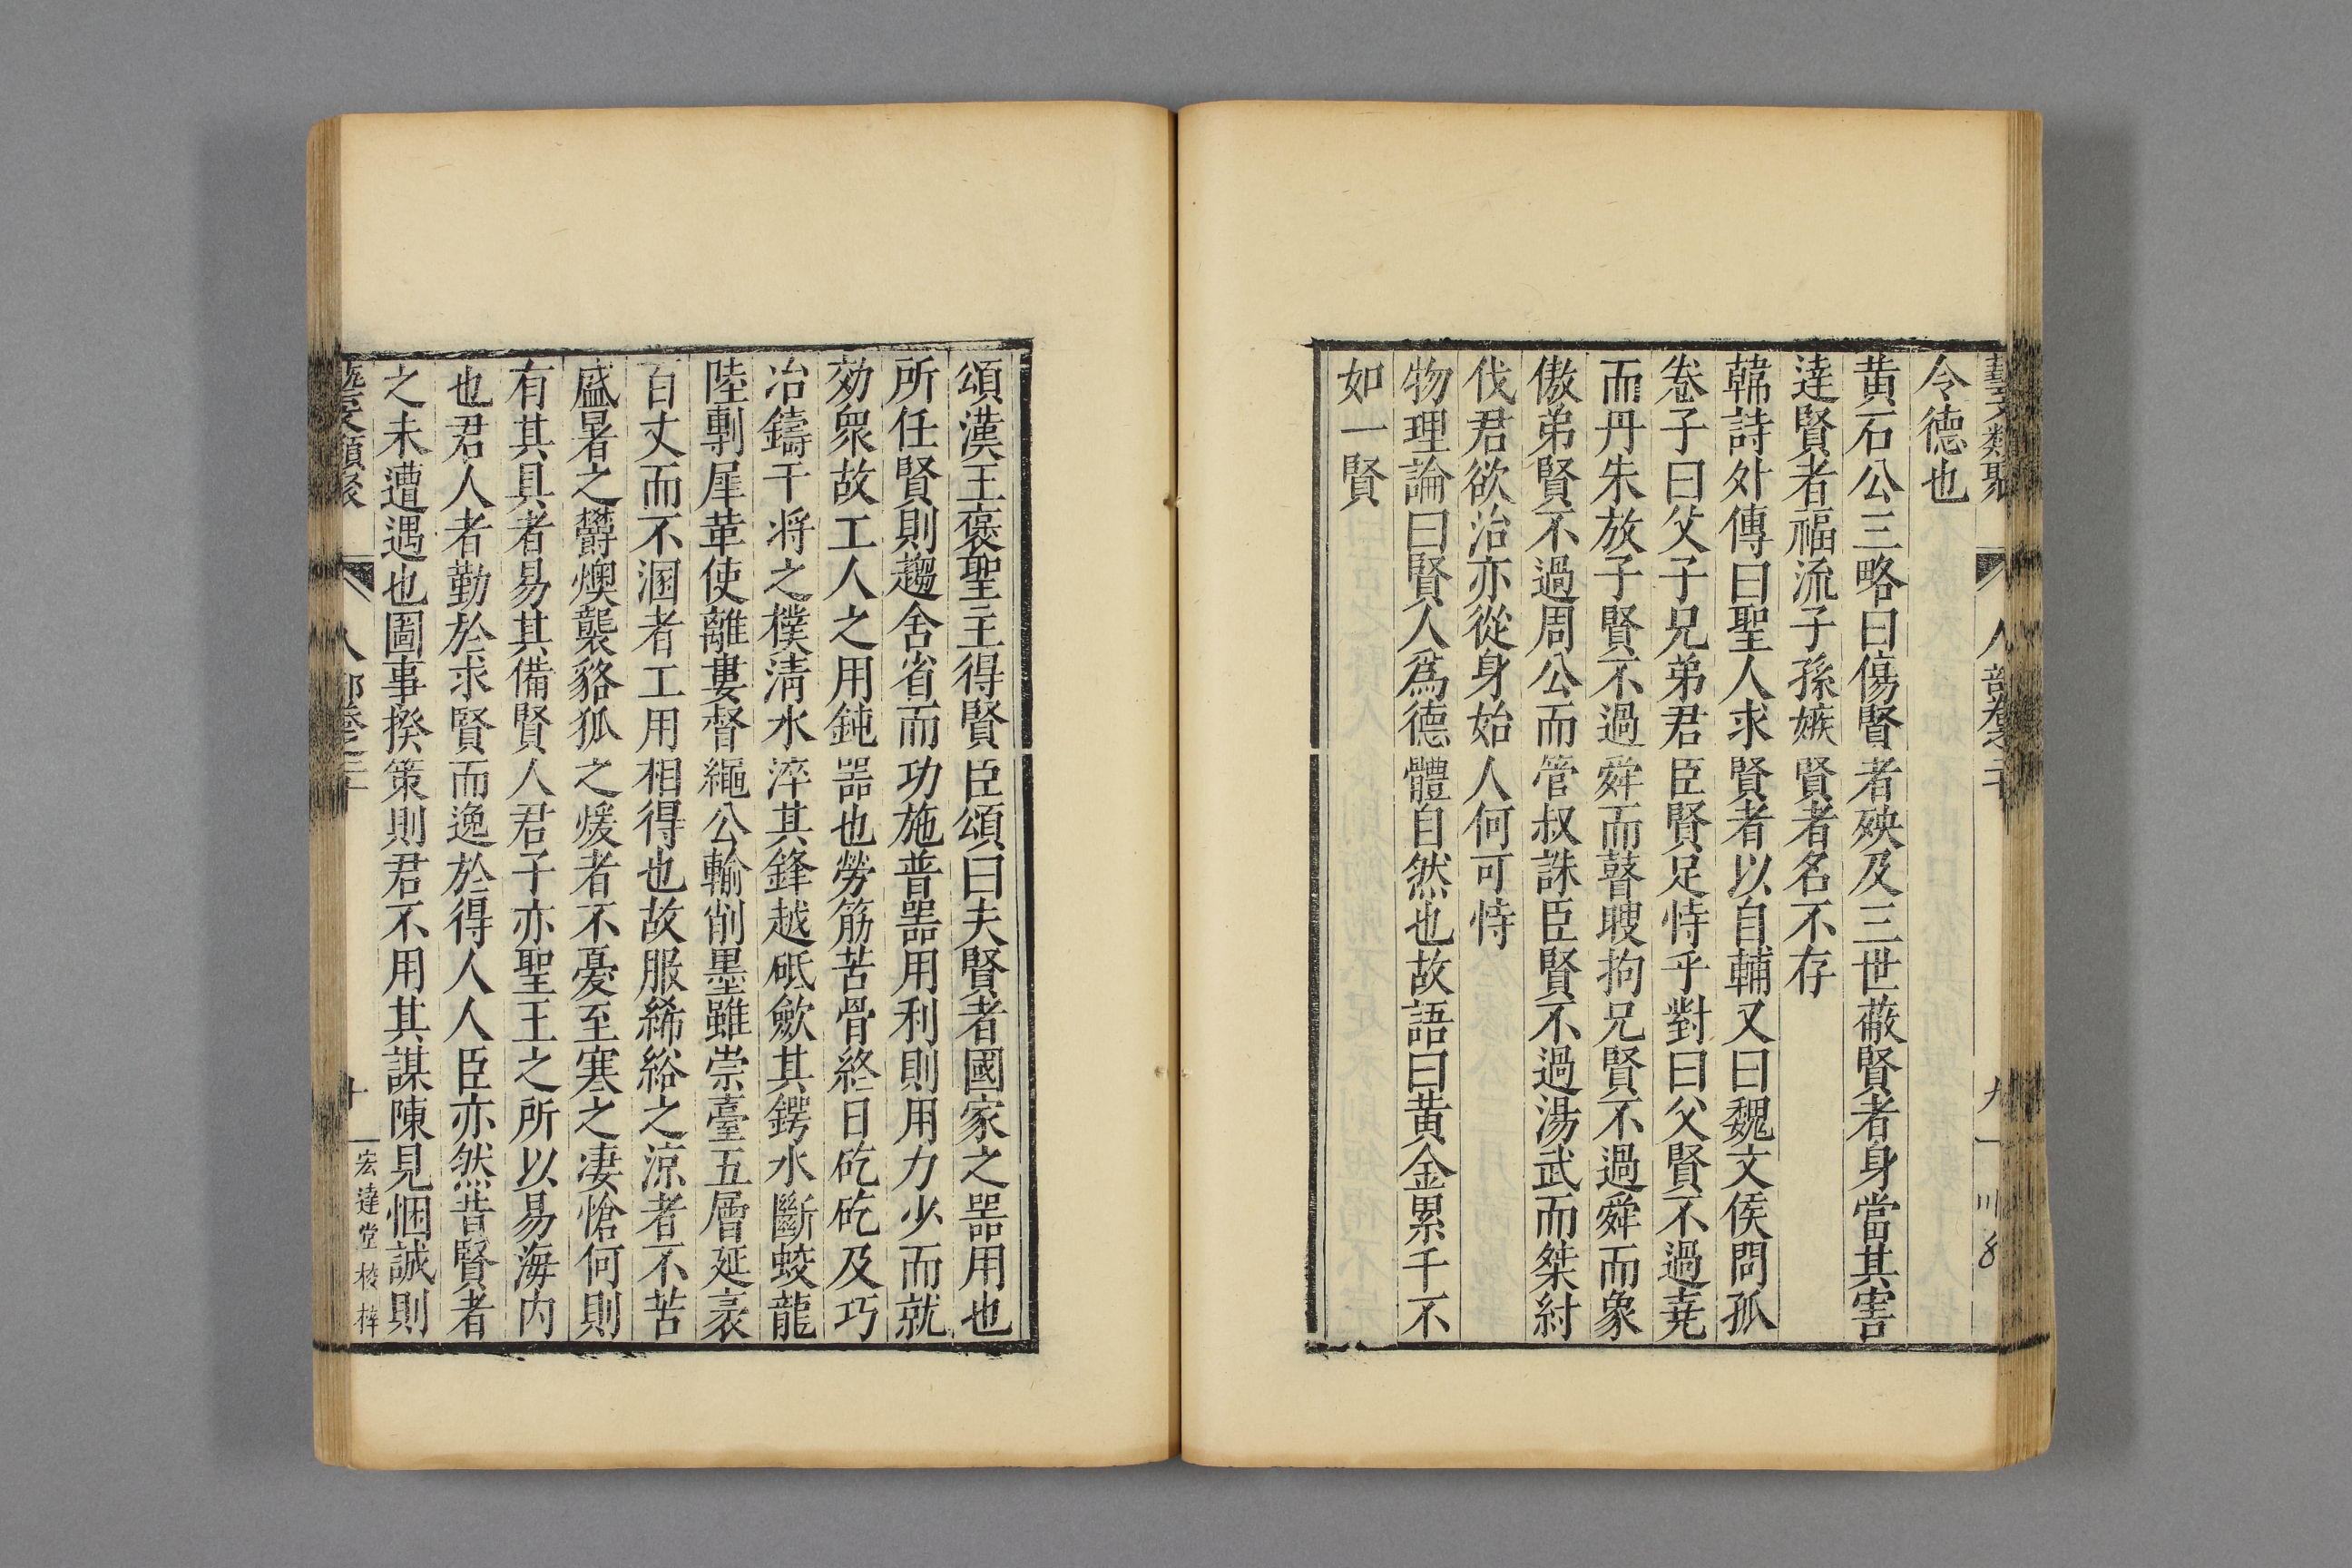 藝文類聚 人部卷二十 九 川8
令德也
黄石公三略曰傷賢者殃及三世蔽賢者身當其害
達賢者福流子孫嫉賢者名不存
韓詩外傳曰聖人求賢者以自輔又曰魏文侯問孤
卷子曰父子兄弟君臣賢足恃乎對曰父賢不過堯
而丹朱放子賢不過舜而瞽瞍拘兄賢不過舜而象
傲弟賢不過周公而管叔誅臣賢不過湯武而桀紂
伐君欲治亦從身始人何可恃
物理論曰賢人爲德體自然也故語曰黄金累千不
如一賢
頌漢王褒聖主得賢臣頌曰夫賢者國家之噐用也
所任賢則趨舍省而功施普噐用利則用力少而就
効衆故工人之用鈍噐也勞筋苦骨終日矻矻及巧
冶鑄干将之樸淸水淬其鋒越砥歛其鍔水斷蛟龍
陸剸犀革使離婁督繩公輸削墨雖崇臺五層延袤
百丈而不溷者工用相得也故服絺綌之涼者不苦
盛暑之欝燠襲貉狐之煖者不憂至寒之凄愴何則
有其具者易其備賢人君子亦聖王之所以易海内
也君人者勤於求賢而逸於得人人臣亦然昔賢者
之未遭遇也圖事揆策則君不用其謀陳見悃誠則
藝文類聚 人部卷二十 十 宏達堂校梓